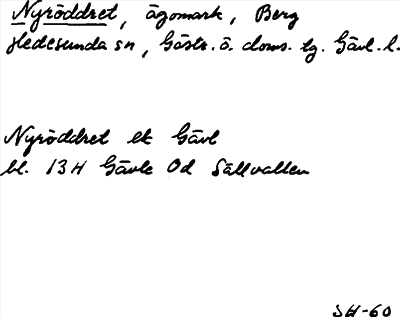 Nyröddret, ägomark, Berg
Hedesunda sn, Gästr. ö. doms. tg. Gävl. l.
Nyröddret ek Gävl
bl. 13H Gävle 0d Sällvallen
SH-60